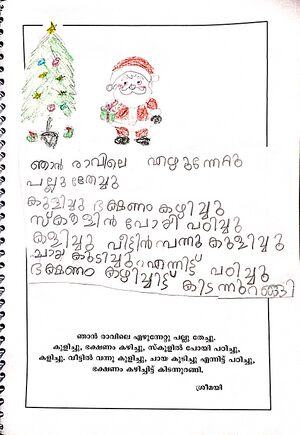 ഞാൻ രാവിലെ എഴുന്നേറ്റു
പല്ലു തേച്ചു
കുളിച്ചു ഭക്ഷണം കഴിച്ചു
സ്കൂളിൽ പോയി പഠിച്ചു
കളിച്ചു വീട്ടിൽ വന്നു കുളിച്ചു
ചായ കുടിച്ചു എന്നിട്ട് പഠിച്ചു
ഭക്ഷണം കഴിച്ചിട്ട് കിടന്നുറങ്ങി
ഞാൻ രാവിലെ എഴുന്നേറ്റു പല്ലു തേച്ചു.
കുളിച്ചു, ഭക്ഷണം കഴിച്ചു, സ്കൂളിൽ പോയി പഠിച്ചു,
കളിച്ചു. വീട്ടിൽ വന്നു കുളിച്ചു, ചായ കുടിച്ചു എന്നിട്ട് പഠിച്ചു,
ഭക്ഷണം കഴിച്ചിട്ട് കിടന്നുറങ്ങി.
ശ്രീമയി